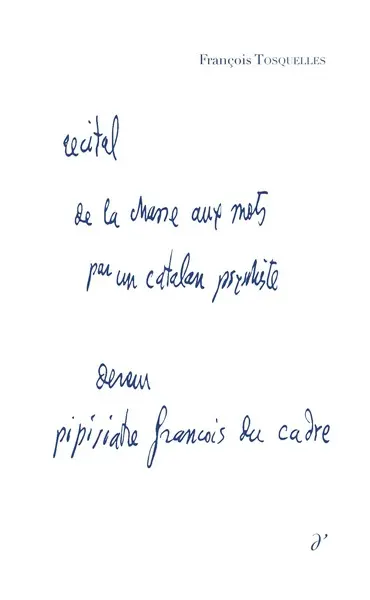 François TOSQUELLES
recital
de la chasse aux mots
par un catalan psychiste
devenu
pipisiatre francois du cadre
∂'